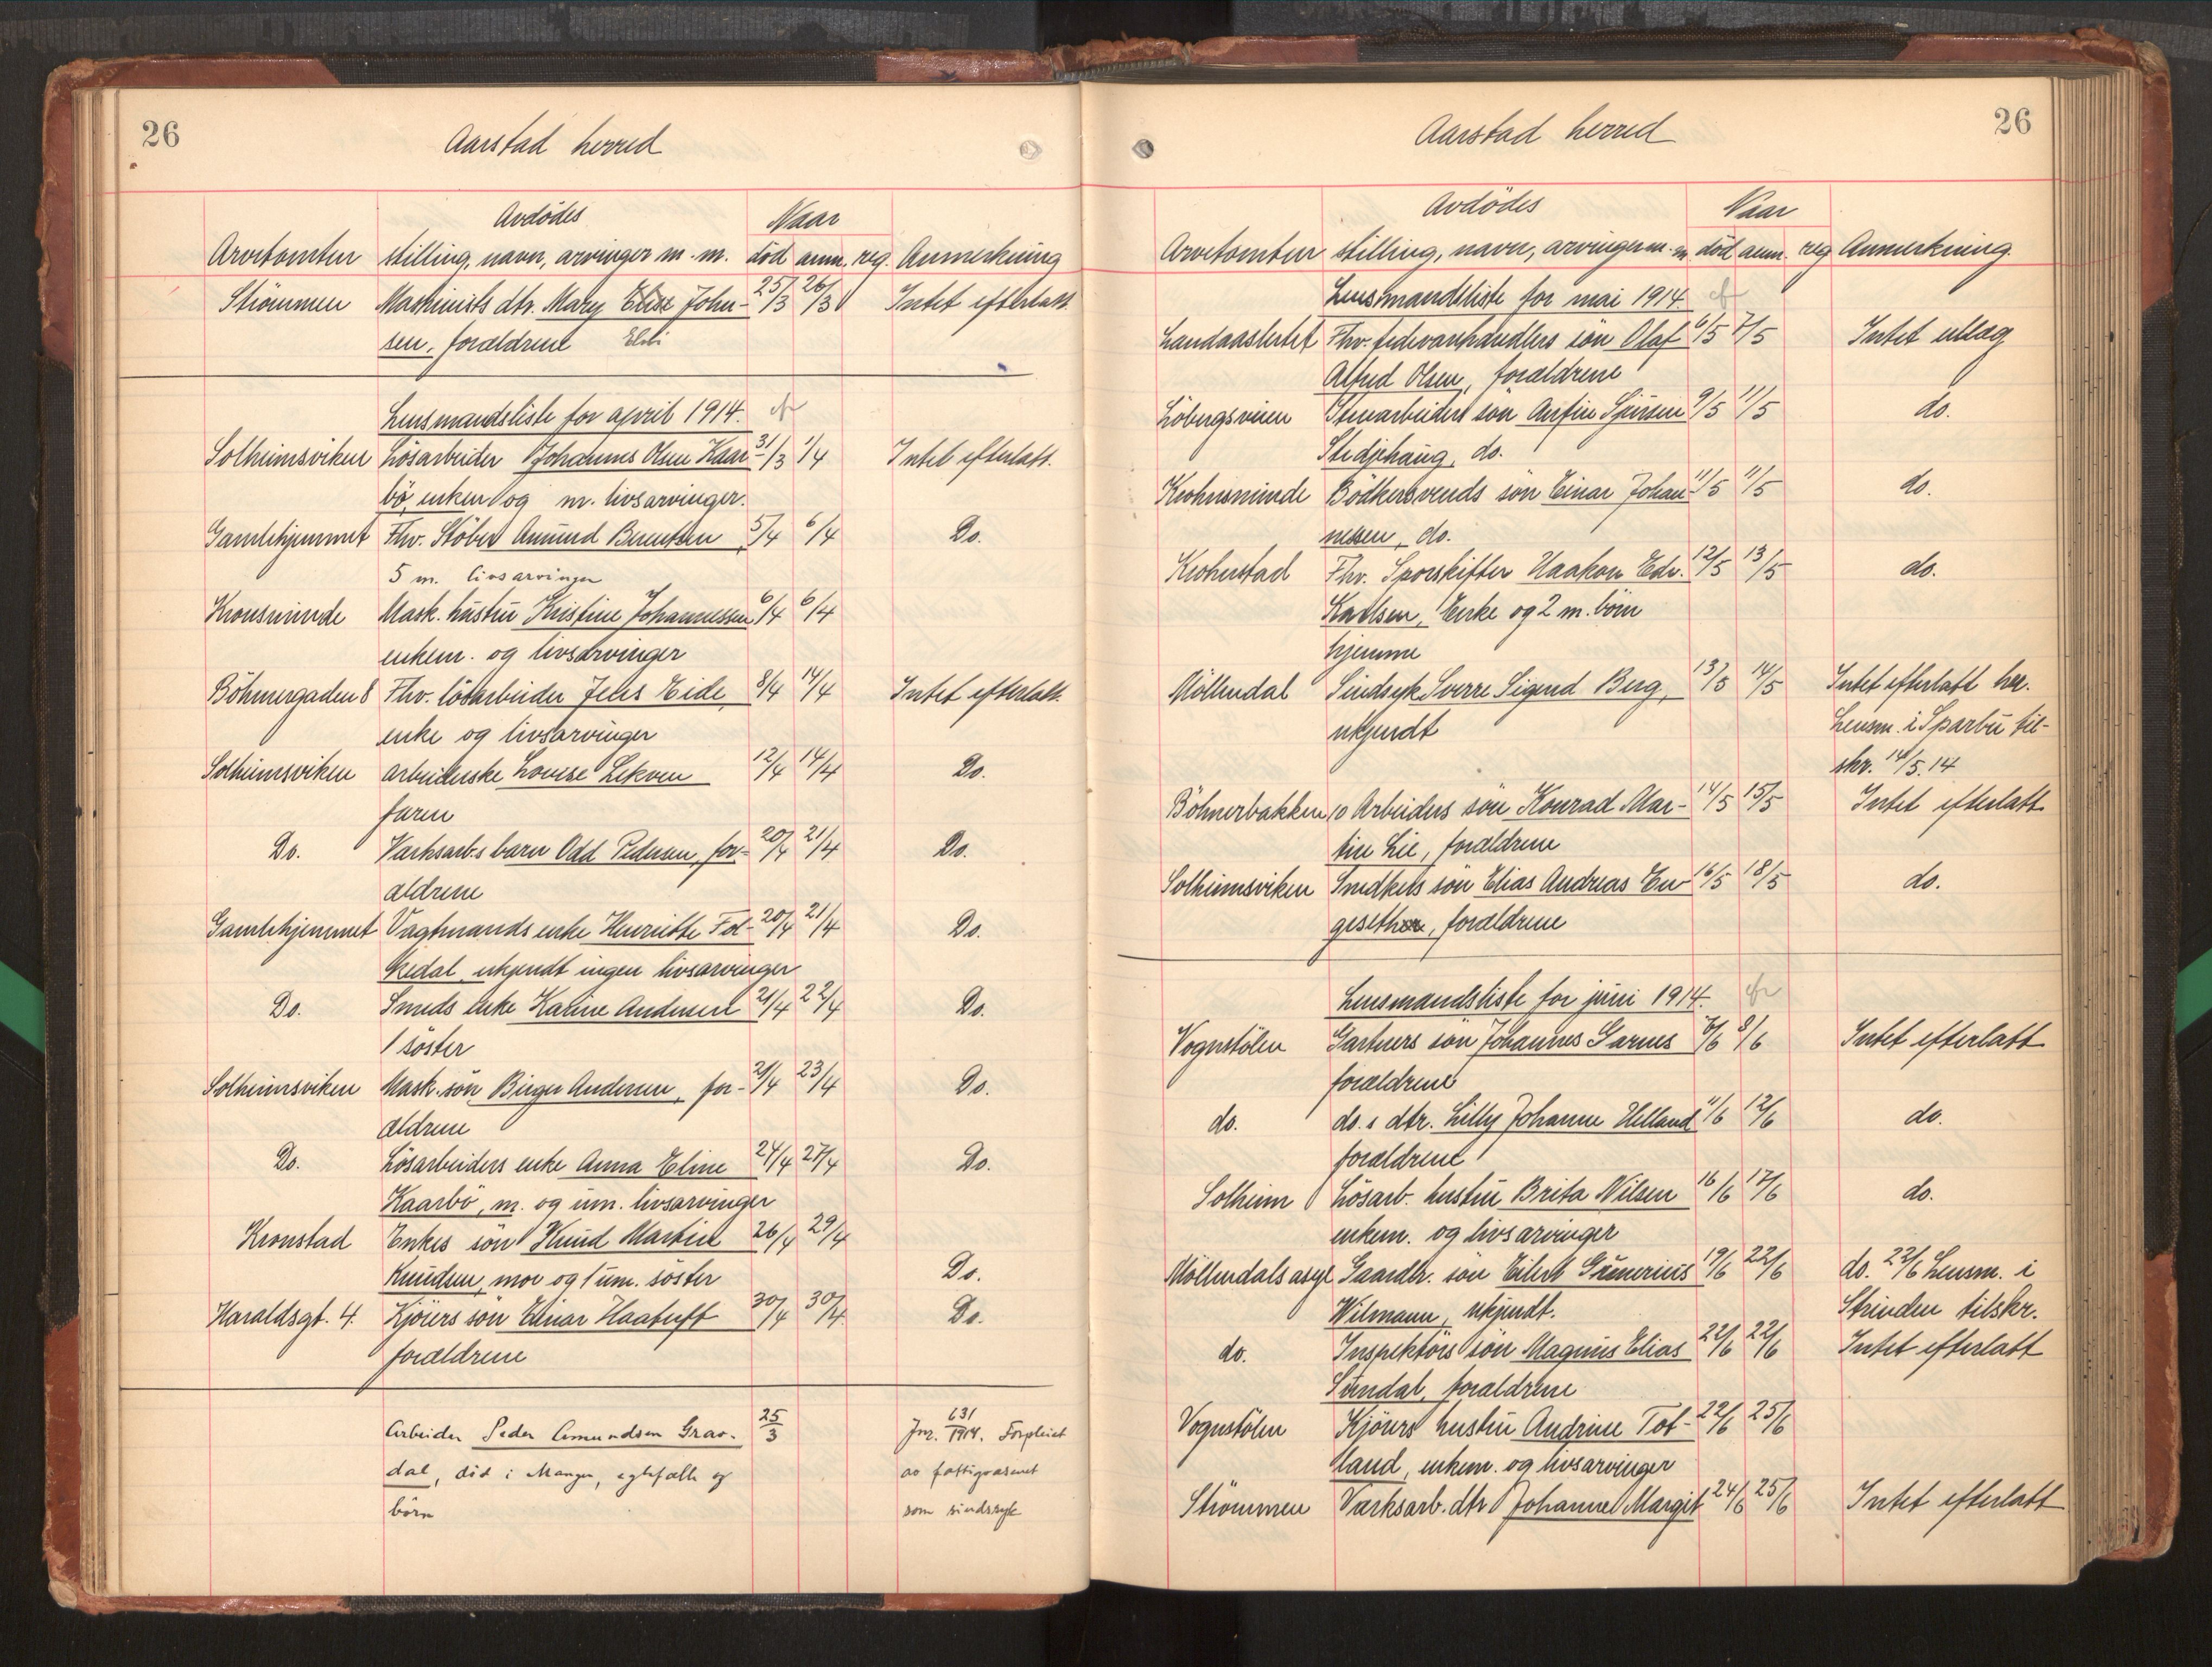 26
Aarstad herred
Avdödes Naar
Arvetomten stilling, navn, arvinger m. m. död anm. reg. Anmerkning
Strömmen Maskinists dtr. Mary Elise John- 25/3 26/3 Intet efterlatt.
sen, forældrene Elbi
Lensmandsliste for april 1914.
Solheimsviken Lösarbeider Johannes Olsen Kaar- 31/3 1/4 Intet efterlatt.
bö, enken og m. livsarvinger.
Gamlehjemmet Fhv. Stöber Amund Berentsen 5/4 6/4 Do.
5 m. livsarvinger
Kronsminde Mask. hustru Kristine Johannessen 6/4 6/4
enkem. og livsarvinger
Böhmergaden 8 Fhv. lösarbeider Jens Eide, 8/4 14/4 Intet efterlatt.
enke og livsarvinger
Solheimsviken arbeiderske Lovise Lekven 12/4 14/4 Do.
faren
Do. Værksarb.s barn Odd Pedersen, for- 20/4 21/4 Do.
ældrene
Gamlehjemmet Vagtmands enke Henriette Fol- 20/4 21/4 Do.
kedal, ukjendt ingen livsarvinger
Do. Smeds enke Karine Andersen 21/4 22/4 Do.
1 söster
Solheimsviken Mask. sön Birger Andersen, for- 21/4 23/4 Do.
ældrene
Do. Lösarbeiders enke Anna Eline 24/4 27/4 Do.
Kaarbö, m. og um. livsarvinger
Kronstad Enkes sön Knud Martin 26/4 29/4
Knudsen, mor og 1 um. söster Do.
Haraldsgt. 4. Kjörers sön Einar Haatuft 30/4 30/4 Do.
forældrene
Arbeider Peder Amundsen Grav- 25/3 Jnr. 631/1914. Forpleiet
dal, död i Manger, egtefælle og av fattigvæsenet
börn som sindssyk
26
Aarstad herred
Avdödes Naar
Arvetomten stilling, navn, arvinger m. m. död anm. reg Anmerkning.
Lensmandsliste for mai 1914.
Landaaslertet Fhv. fedevarehandlers sön Olaf 6/5 7/5 Intet utlæg
Alfred Olsen, forældrene
Löbergsveien Stenarbeiders sön Anfin Sjursen 9/5 11/5 do.
Stedjehaug, do.
Krohnsminde Bödkersvends sön Einar Johan- 11/5 11/5 do.
nesen, do.
Krohnstad Fhv. Sporskifter Haakon Edv. 12/5 13/5 do.
Karlsen, Enke og 2 m. börn
hjemme
Möllendal Sindsyk Sverre Sigurd Berg, 13/5 14/5 Intet efterlatt her.
ukjendt Lensm. i Sparbu til-
skr. 14/5.14
Böhmerbakken 10 Arbeiders sön Konrad Mar- 14/5 15/5 Intet efterlatt
tin Lie, forældrene
Solheimsviken Snedkers sön Elias Andreas En- 16/5 18/5 do.
geseth, forældrene
Lensmandsliste for juni 1914.
Vognstölen Gartners sön Johannes Garnes 7/6 8/6 Intet efterlatt
forældrene
do. do. s dtr. Lilly Johanne Helland 11/6 12/6 do.
forældrene
Solheim Lösarb. hustru Brita Nilsen 16/6 17/6 do.
enkem. og livsarvinger
Möllendals asyl Gaardbr. sön Eilert Grunerius 19/6 22/6 do. 22/6 Lensm. i
Wilmann, ukjendt. Strinden tilskr.
do. Inspektörs sön Magnus Elias 22/6 22/6 Intet efterlatt
Sundal, forældrene
Vognstölen Kjörers hustru Andrine Tot- 22/6 25/6
land, enkem. og livsarvinger
Strömmen Værksarb. dtr Johanne Margit 24/6 25/6 Intet efterlatt